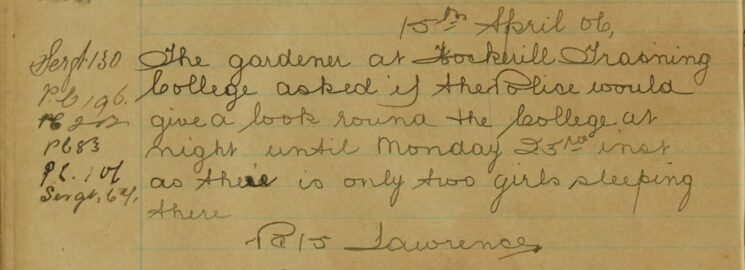 15th April 06,
Sergt 130 The gardener at Hockerill Training
PC 196. College asked if the Police would
PC 202 give a look round the College at
PC 83 night until Monday 23rd inst
PC. 101 as there is only two girls sleeping
Sergt. 64, there
PC 15 Lawrence,